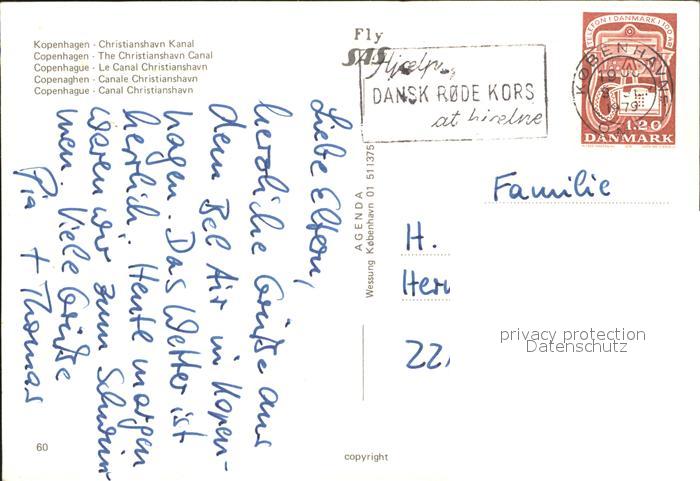 Kopenhagen - Christianshavn Kanal
Copenhagen - The Christianshavn Canal
Copenhague - Le Canal Christianshavn
Copenaghen - Canale Christianshavn
Copenhague - Canal Christianshavn
Fly
SAS
Hjælp
DANSK RØDE KORS
at hjælpe
KØBENHAVN
1979
TELEFON I DANMARK 100 ÅR
1.20
DANMARK
Liebe Eltern,
herzliche Grüße aus
dem Bel Air in Kopen-
hagen. Das Wetter ist
herrlich. Heute morgen
waren wir zum Schwim
men. Viele Grüße
Pia + Thomas
AGENDA
Wessung København 01 511375
Familie
H.
Her
22
privacy protection
Datenschutz
60
copyright